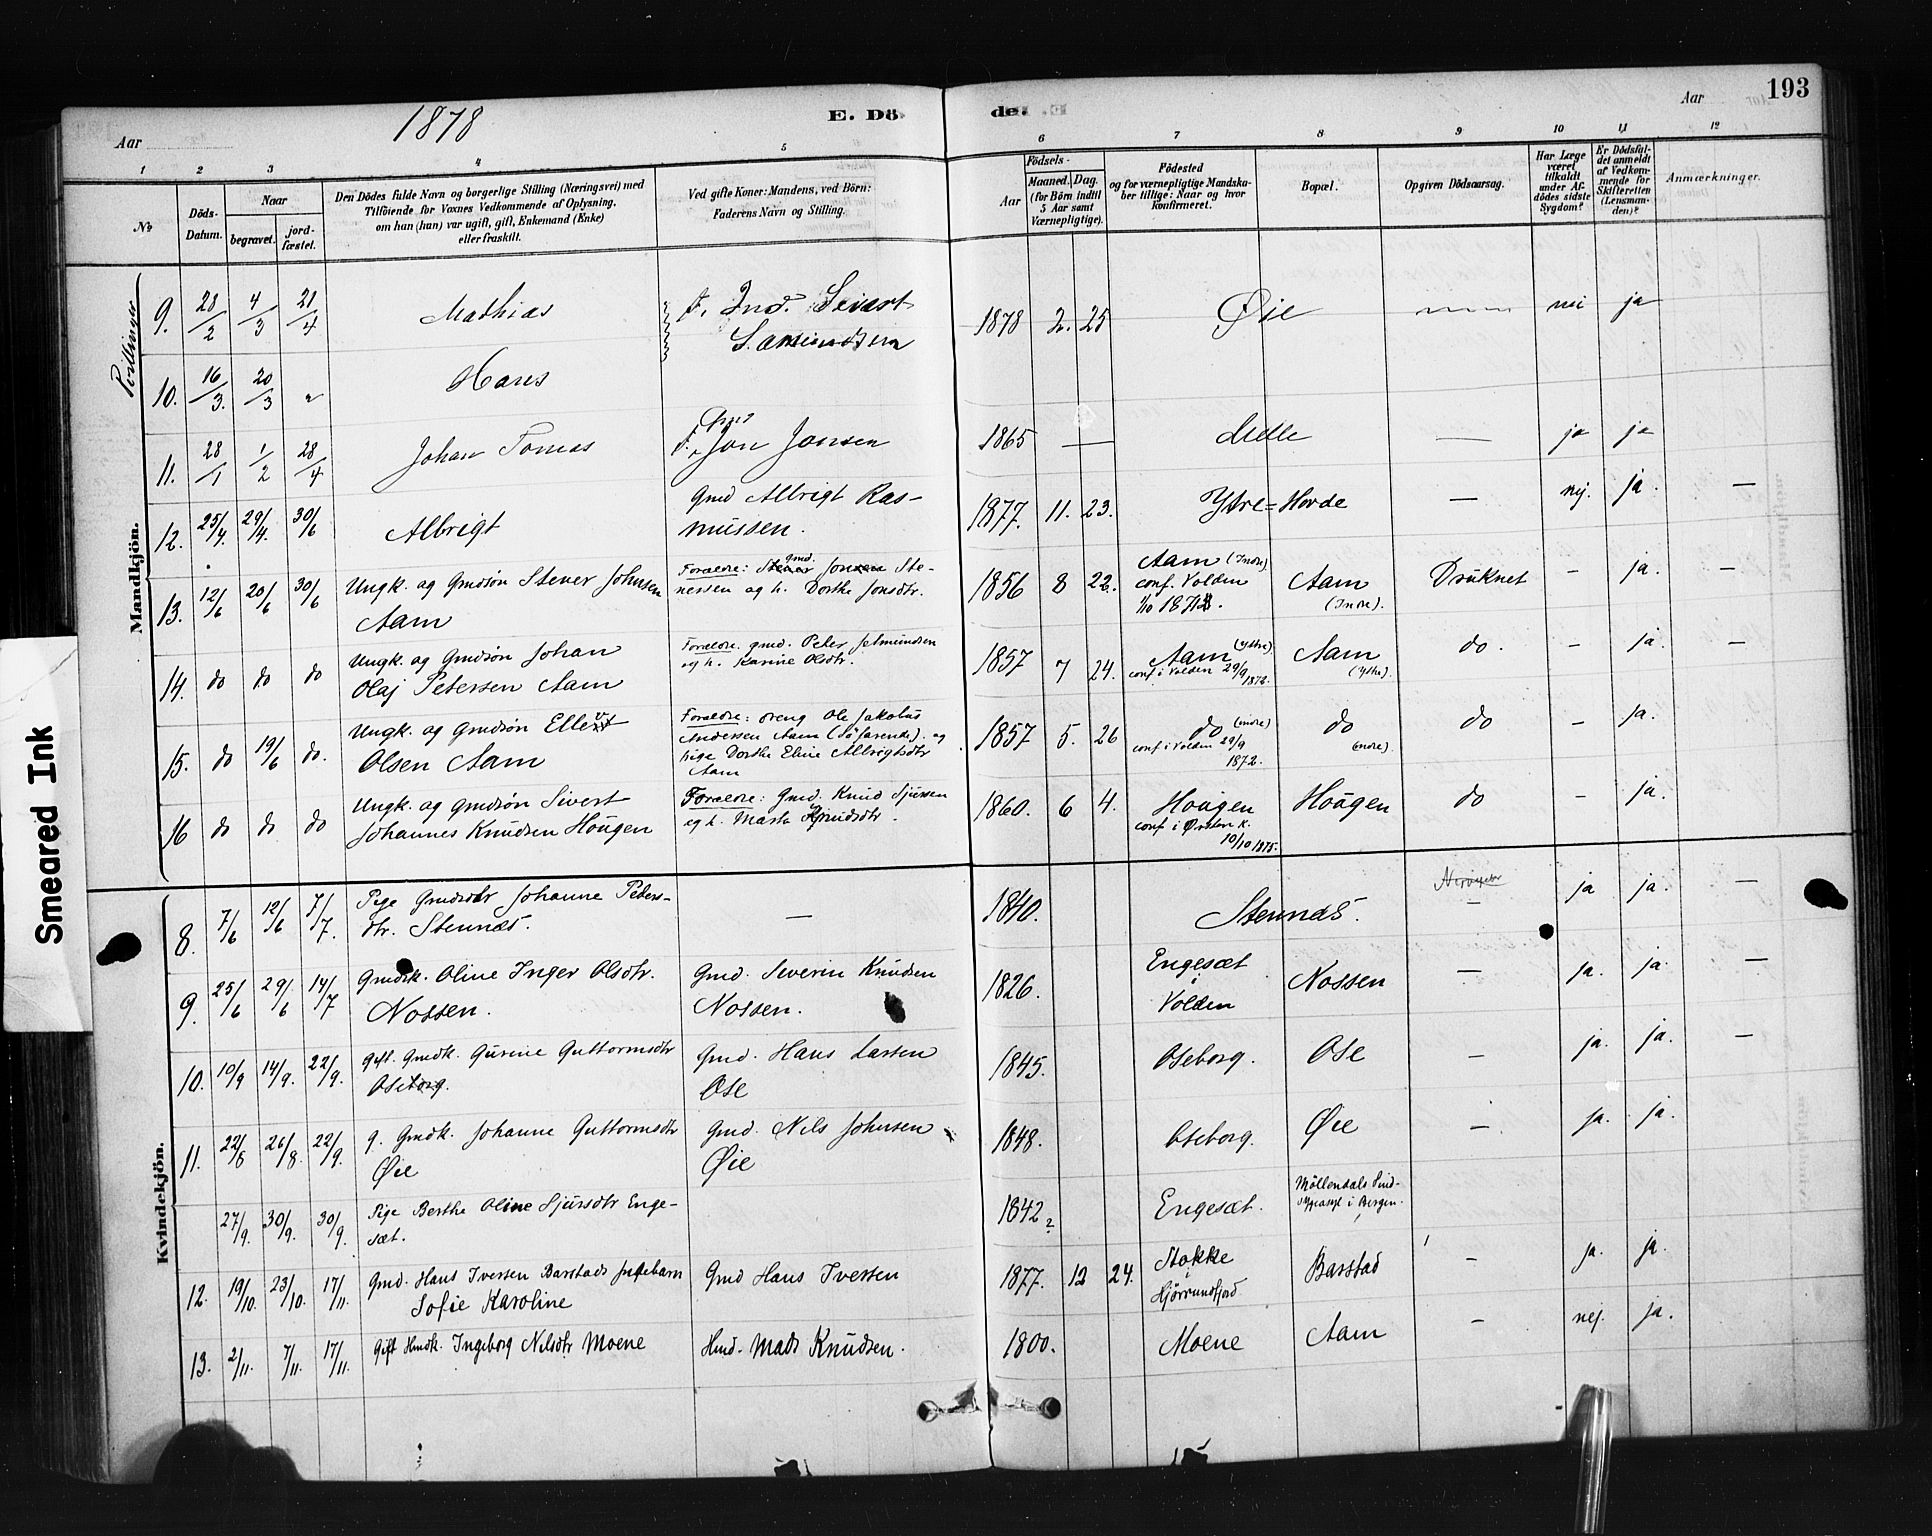 193
Aar
1878
E. Dö
de.
Aar
1
2
3
4
5
6
7
8
9
10
11
12
No
Döds-
Datum.
Naar
begravet.
jord-
fæstet.
Den Dödes fulde Navn og borgerlige Stilling (Næringsvei) med
Tilföiende for Voxnes Vedkommende af Oplysning.
om han (hun) var ugift, gift, Enkemand (Enke)
eller fraskilt.
Ved gifte Koner: Mandens, ved Börn:
Faderens Navn og Stilling.
Födsels-
Aar
Maaned.
Dag.
(for Börn indtil
5 Aar samt
Værnepligtige).
Födested
og for værnepligtige Mandska-
ber tillige: Naar og hvor
konfirmeret.
Bopæl.
Opgiven Dödsaarsag.
Har Læge
været
tilkaldt
under Af-
dödes sidste
Sygdom?
Er Dödsfal-
det anmeldt
af Vedkom-
mende for
Skifteretten
(Lensman-
den)?
Anmærkninger.
Smeared Ink
Mandkjön.
Tvillinger
9. 28/2 4/3 21/4 Mathias F. Ind. Sivert
Samundsen 1878 2. 25 Øie nei ja
10. 16/3. 20/3 " Hans
11. 28/1 1/2 28/4 Johan Tomas F. Jon Jonsen 1865 — Melle — ja ja
12. 25/4. 29/4. 30/6 Albrigt Gmd Albrigt Ras-
mussen. 1877. 11. 23. Ytre=Hovde — nej. ja. —
13. 12/6 20/6 30/6 Ungk. og Gmdsøn Stener Johnsen
Aam
Forældre: gmd. Ste-
nessen og h. Dorthe Jonsdtr.
1856 8 22. Aam (Indre)
conf. Volden
Aam
(Indre).
Druknet - ja. —
14. do do do Ungk. og Gmdsøn Johan
Olaj Petersen Aam
Forældre. gmd. Peter Asmundsen
og h. Karine Olsdtr.
1857 7 24. Aam (Ytre)
conf i Volden 29/9
1872.
Aam
(Ytre).
do. - ja. —
15. do 19/6 do. Ungk. og Gmdsøn Ellert
Olsen Aam
Forældre: dreng Ole Jakobus
Andersen Aam (Söfarende). og
pige Dorthe Eline Albrigtsdtr
Aam
1857 5. 26 do (indre)
conf i Volden 29/9
1872.
do
(indre).
do - ja.
16 do do do Ungk. og Gmdsøn Sivert
Johannes Knudsen Hougen
Forældre: Gmd. Knud Sjursen
og h. Marta Knudsdtr.
1860. 6 4. Hougen
conf i Ørsten k.
10/10 1875.
Hougen do - ja.
Kvindekjön.
8. 7/6 12/6 7/7. Pige Gmdsdtr Johanne Peders-
dtr. Stennæs. — 1840. Stennæs. — ja ja. —
9. 25/6 29/6 14/7 Gmdsk. Oline Inger Olsdtr.
Nossen.
Gmd. Severin Knudsen
Nossen.
1826. Engesæt
i
Volden
Nossen — ja. ja. —
10. 10/9 14/9. 22/9. Gift. Gmdk. Gurine Guttormsdtr
Oseborg.
Gmd. Hans Larsen
Ose
1845. Oseborg. Ose - ja. ja. —
11. 22/8 26/8. 22/9. g. Gmdk. Johanne Guttormsdtr
Øie
Gmd. Nils Johnsen
Øie
1848. Oseborg. Øie - ja. ja.
27/9. 30/9. 30/9. Pige Berthe Oline Sjursdtr Enge-
sæt.
1842? Engesæt. Möllendals Sind-
i Bergen.
12. 19/10. 23/10. 17/11. Gmd. Hans Iversen Barstads
Sofie Karoline
Gmd Hans Iversen
1877. 12 24. Stokke
i
Hjörrundfjord
Barstad - ja. ja.
13. 2/11. 7/11. 17/11. Gift Hmdk. Ingeborg Nilsdtr Moene Hmd. Mads Knudsen. 1800. Moene Aam - nej. ja.